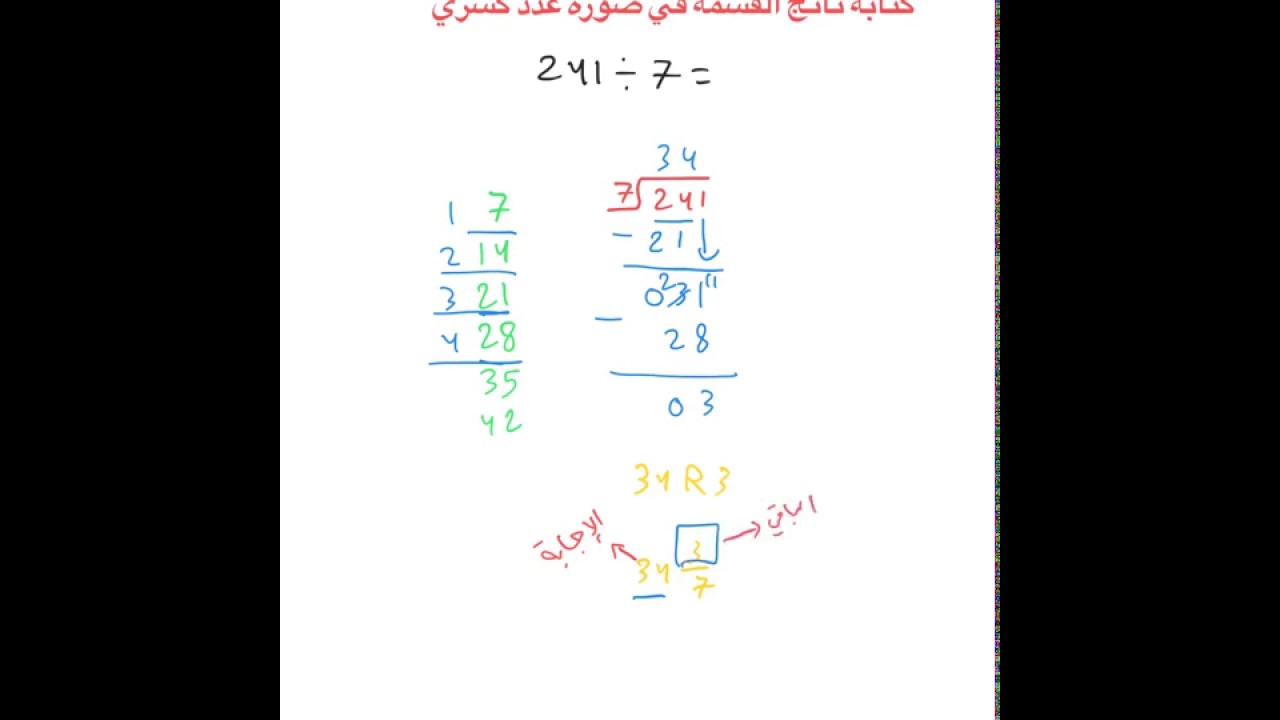 كتابة ناتج القسمة في صورة عدد كسري
241 ÷ 7 =
34
7 241
1 7
- 21
2 14
0 3 2 1 11
3 21
- 28
4 28
35
03
42
34 R 3
الباقي
الإجابة
34 3/7